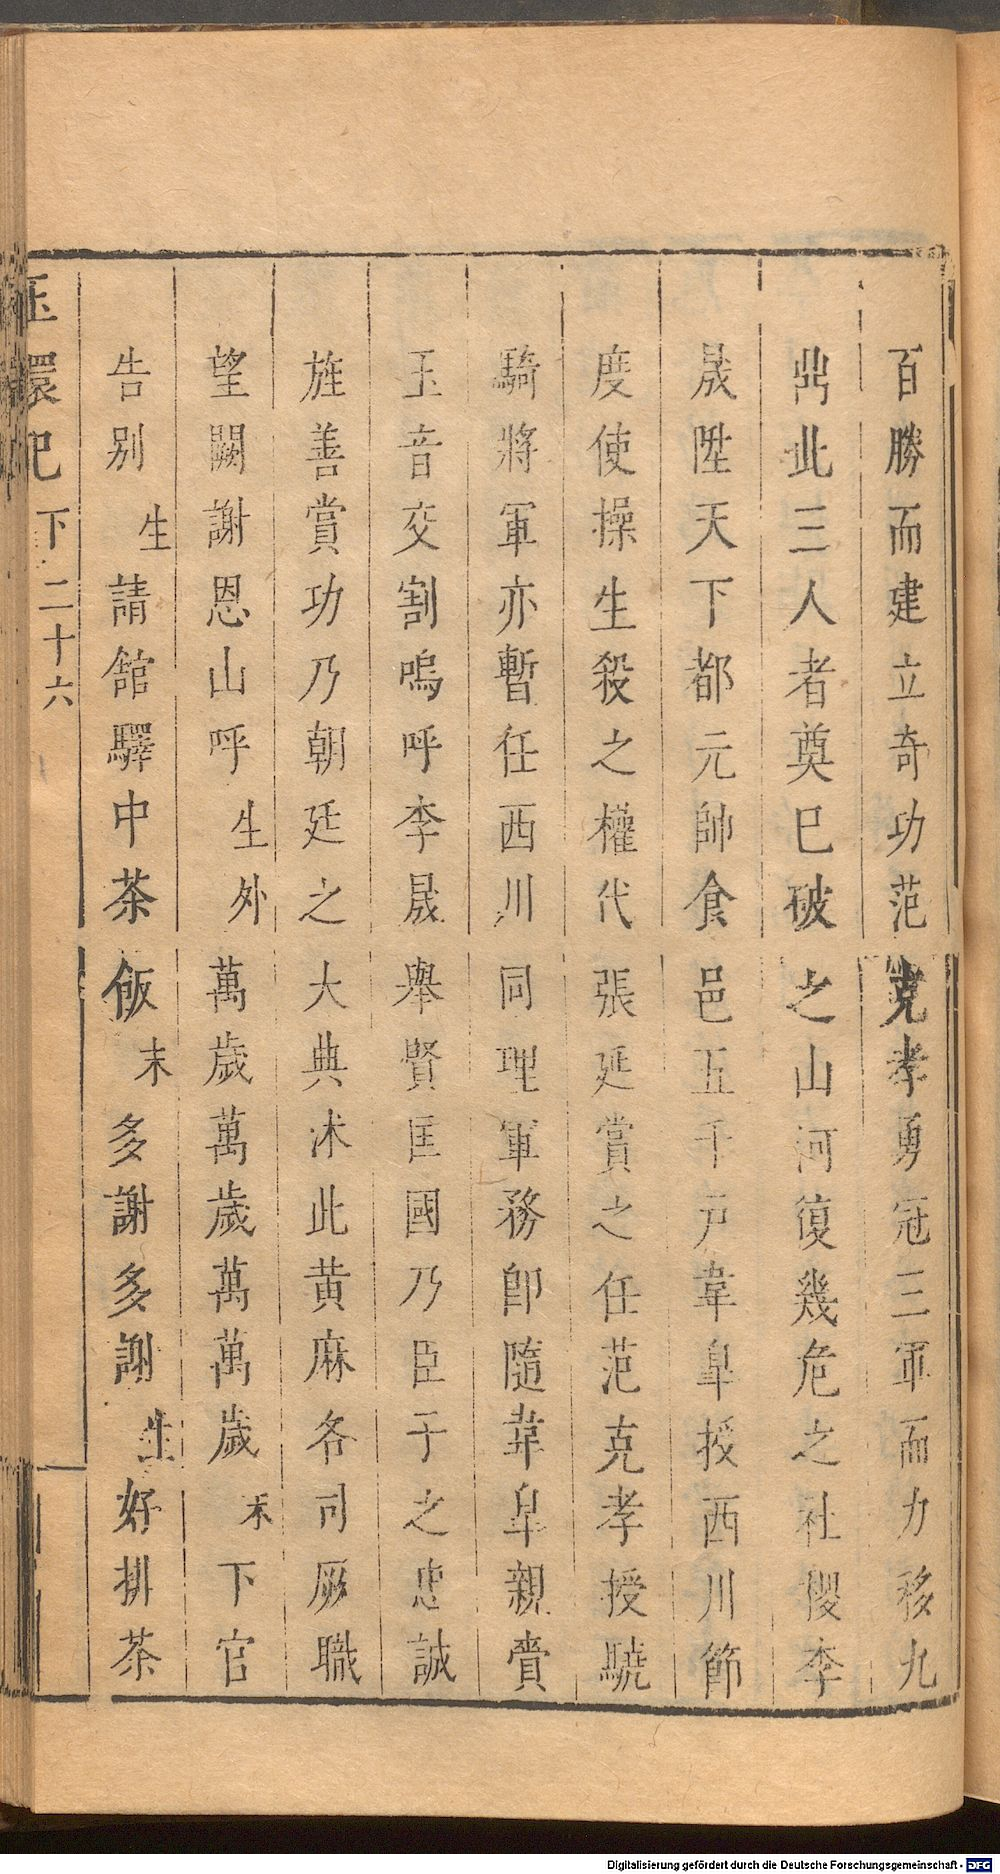 百勝而建立奇功范克孝勇冠三軍而力移九
鼎此三人者奠已破之山河復幾危之社稷李
晟陞天下都元帥食邑五千戸韋皐授西川節
度使操生殺之權代張延賞之任范克孝授驍
騎將軍亦暫任西川同理軍務卽隨韋皐親賫
玉音交割嗚呼李晟舉賢匡國乃臣于之忠誠
旌善賞功乃朝廷之大典沐此黄麻各司厥職
望闕謝恩山呼生外萬歲萬歲萬萬歲末下官
告别生請舘驛中茶飯末多謝多謝生好排茶
玉環記 下 二十六
Digitalisierung gefördert durch die Deutsche Forschungsgemeinschaft - DFG